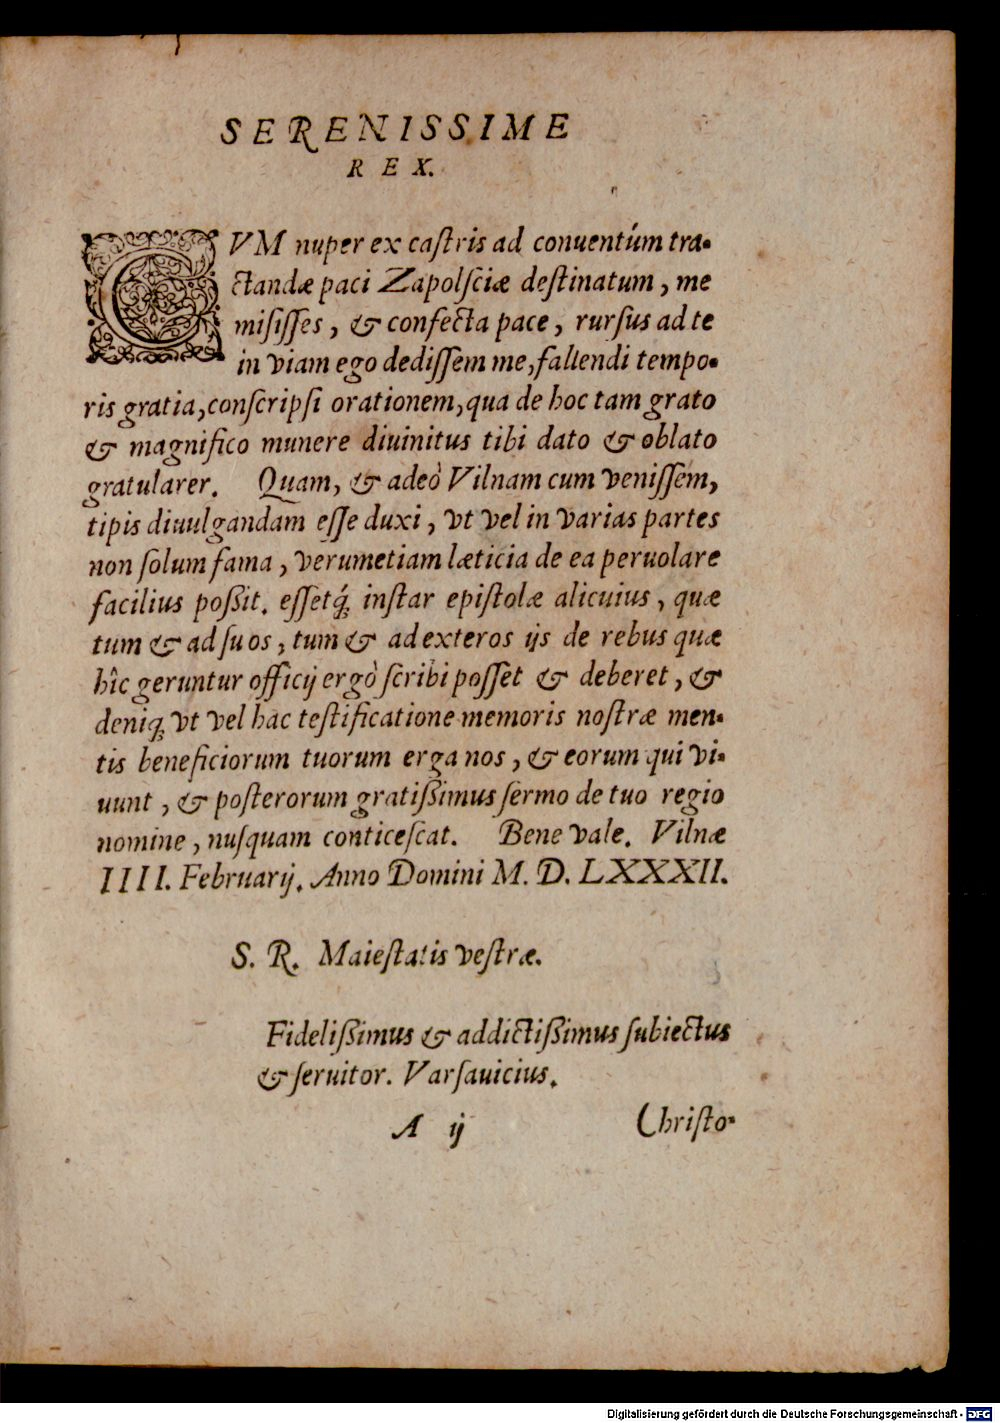 SERENISSIME
REX.
CVM nuper ex caſtris ad conuentúm tra-
ctandæ paci Zapolſciæ deſtinatum, me
miſiſſes, & confecta pace, rurſus ad te
in viam ego dediſſem me, fallendi tempo-
ris gratia, conſcripſi orationem, qua de hoc tam grato
& magnifico munere diuinitus tibi dato & oblato
gratularer. Quam, & adeò Vilnam cum veniſſem,
tipis diuulgandam eſſe duxi, vt vel in varias partes
non ſolum fama, verumetiam læticia de ea peruolare
facilius poſsit. eſſetq́; inſtar epiſtolæ alicuius, quæ
tum & ad ſuos, tum & ad exteros ijs de rebus quæ
hîc geruntur officij ergò ſcribi poſſet & deberet, &
deniq; vt vel hac teſtificatione memoris noſtræ men-
tis beneficiorum tuorum erga nos, & eorum qui vi-
uunt, & poſterorum gratiſsimus ſermo de tuo regio
nomine, nuſquam conticeſcat. Bene vale. Vilnæ
IIII. Februarij. Anno Domini M. D. LXXXII.
S. R. Maieſtatis veſtræ.
Fideliſsimus & addictiſsimus ſubiectus
& ſeruitor. Varſauicius.
A ij Chriſto-
Digitalisierung gefördert durch die Deutsche Forschungsgemeinschaft - DFG